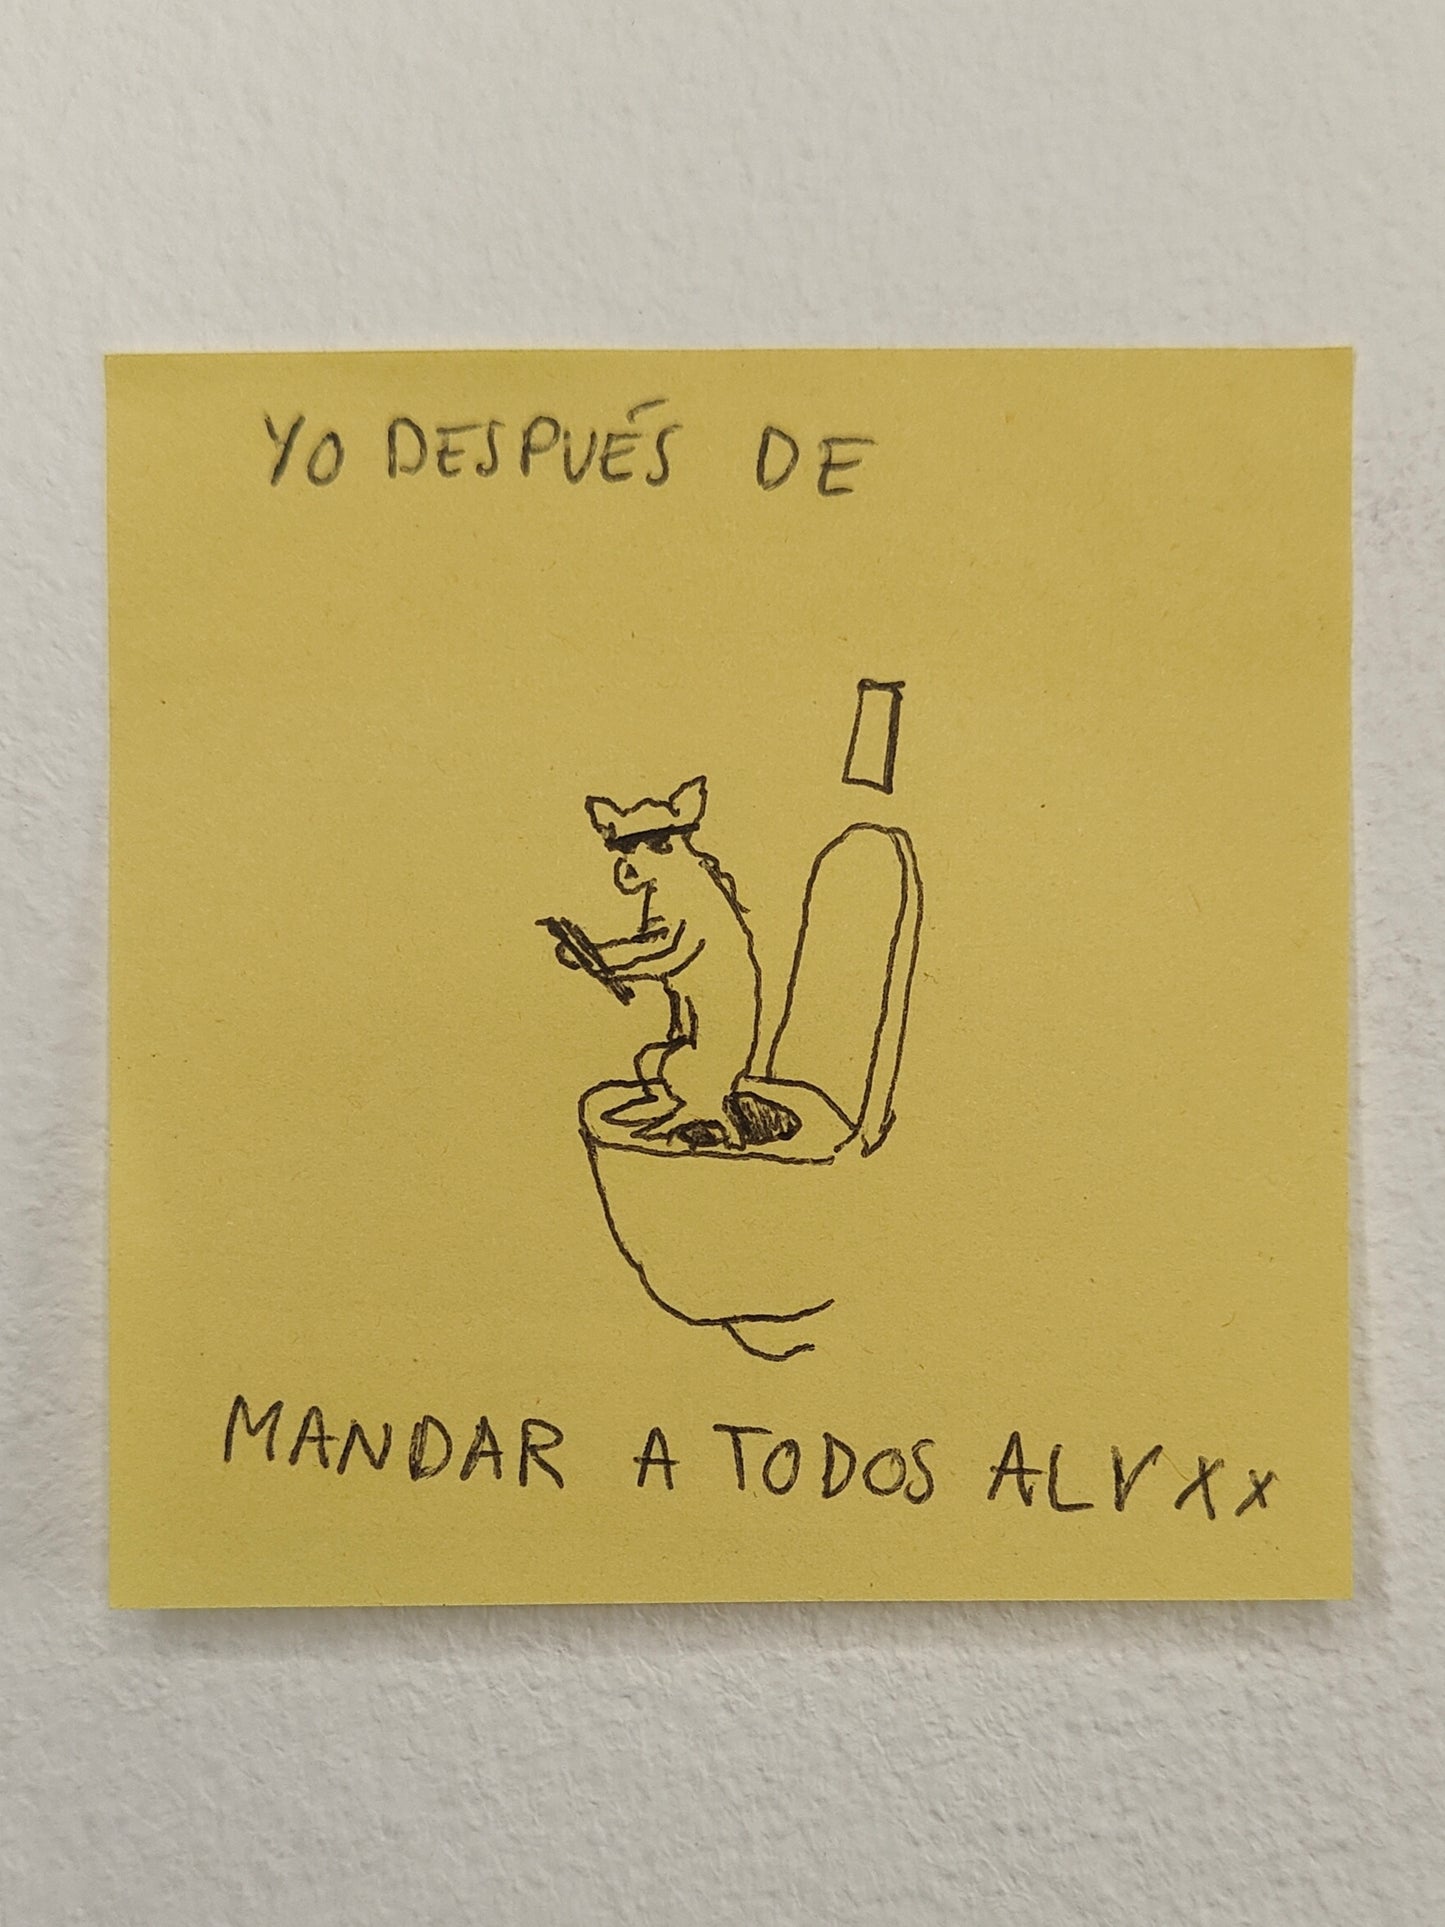 YO DESPUÉS DE
MANDAR A TODOS ALV XX